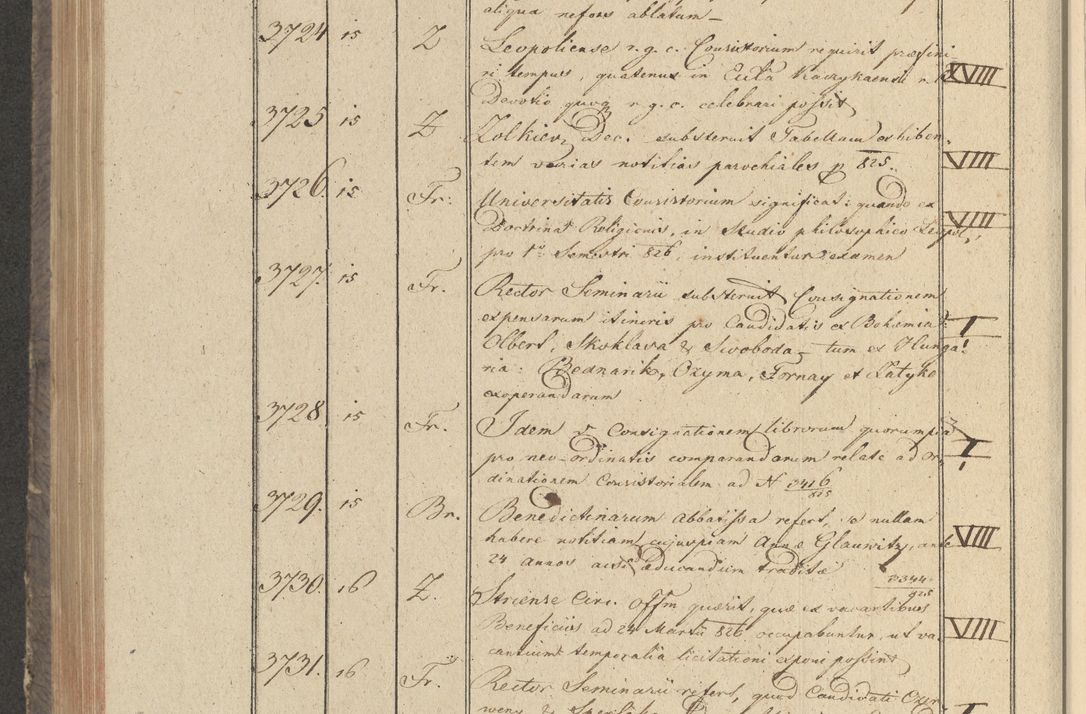 aliqua nefors ablatum_
3724 15 Z Leopoliense r. g. c. Consistorium requirit præfini
ri tempus, quatenus in Eccla Kaczykaensi r. l. XVIII
Devotio quoq r. g. c. celebrari possit
3725 15 Z Zolkiev, Dec. substeruit Tabellam exhiben
tem varias notitias parochiales p 825. VIII
3726. 15 Fr: Universitatis Consistorium significat: quando ex
Doctrina Religionis, in Studio philosophico Leopol, VIII
pro 1o Semestri 826, instituentur examen
3727. 15 Fr. Rector Seminarii substeruit Consignationem
expensarum itineris pro Candidatis ex Bohemia: I
Olbert, Skoklava & Swoboda_ tum ex Hunga!
ria: Bednarik, Ozyma, Fornay et Zatyko
exoperandarum
3728 15 Fr. Idem & Consignationem librorum quorumpiam
pro neo-ordinatis comparandorum relate ad Or, I
dinationem Consistorialem ad N 3416/825
3729. 15 Br. Benedictinarum Abbatissa refert, se nullam
habere notitiam cujuspiam Annæ Glauwitz, ante VIII
24 annos ad educandum traditæ 3344/825
3730. 16 Z. Striense Circ. Offm quærit, quæ ex vacantibus
Beneficiis ad 24 Martii 826 occupabuntur, ut va VIII
cantium temporalia licitationi exponi possint
3731. 16 Fr. Rector Seminarii refert, quod Candidati Czer
weny &